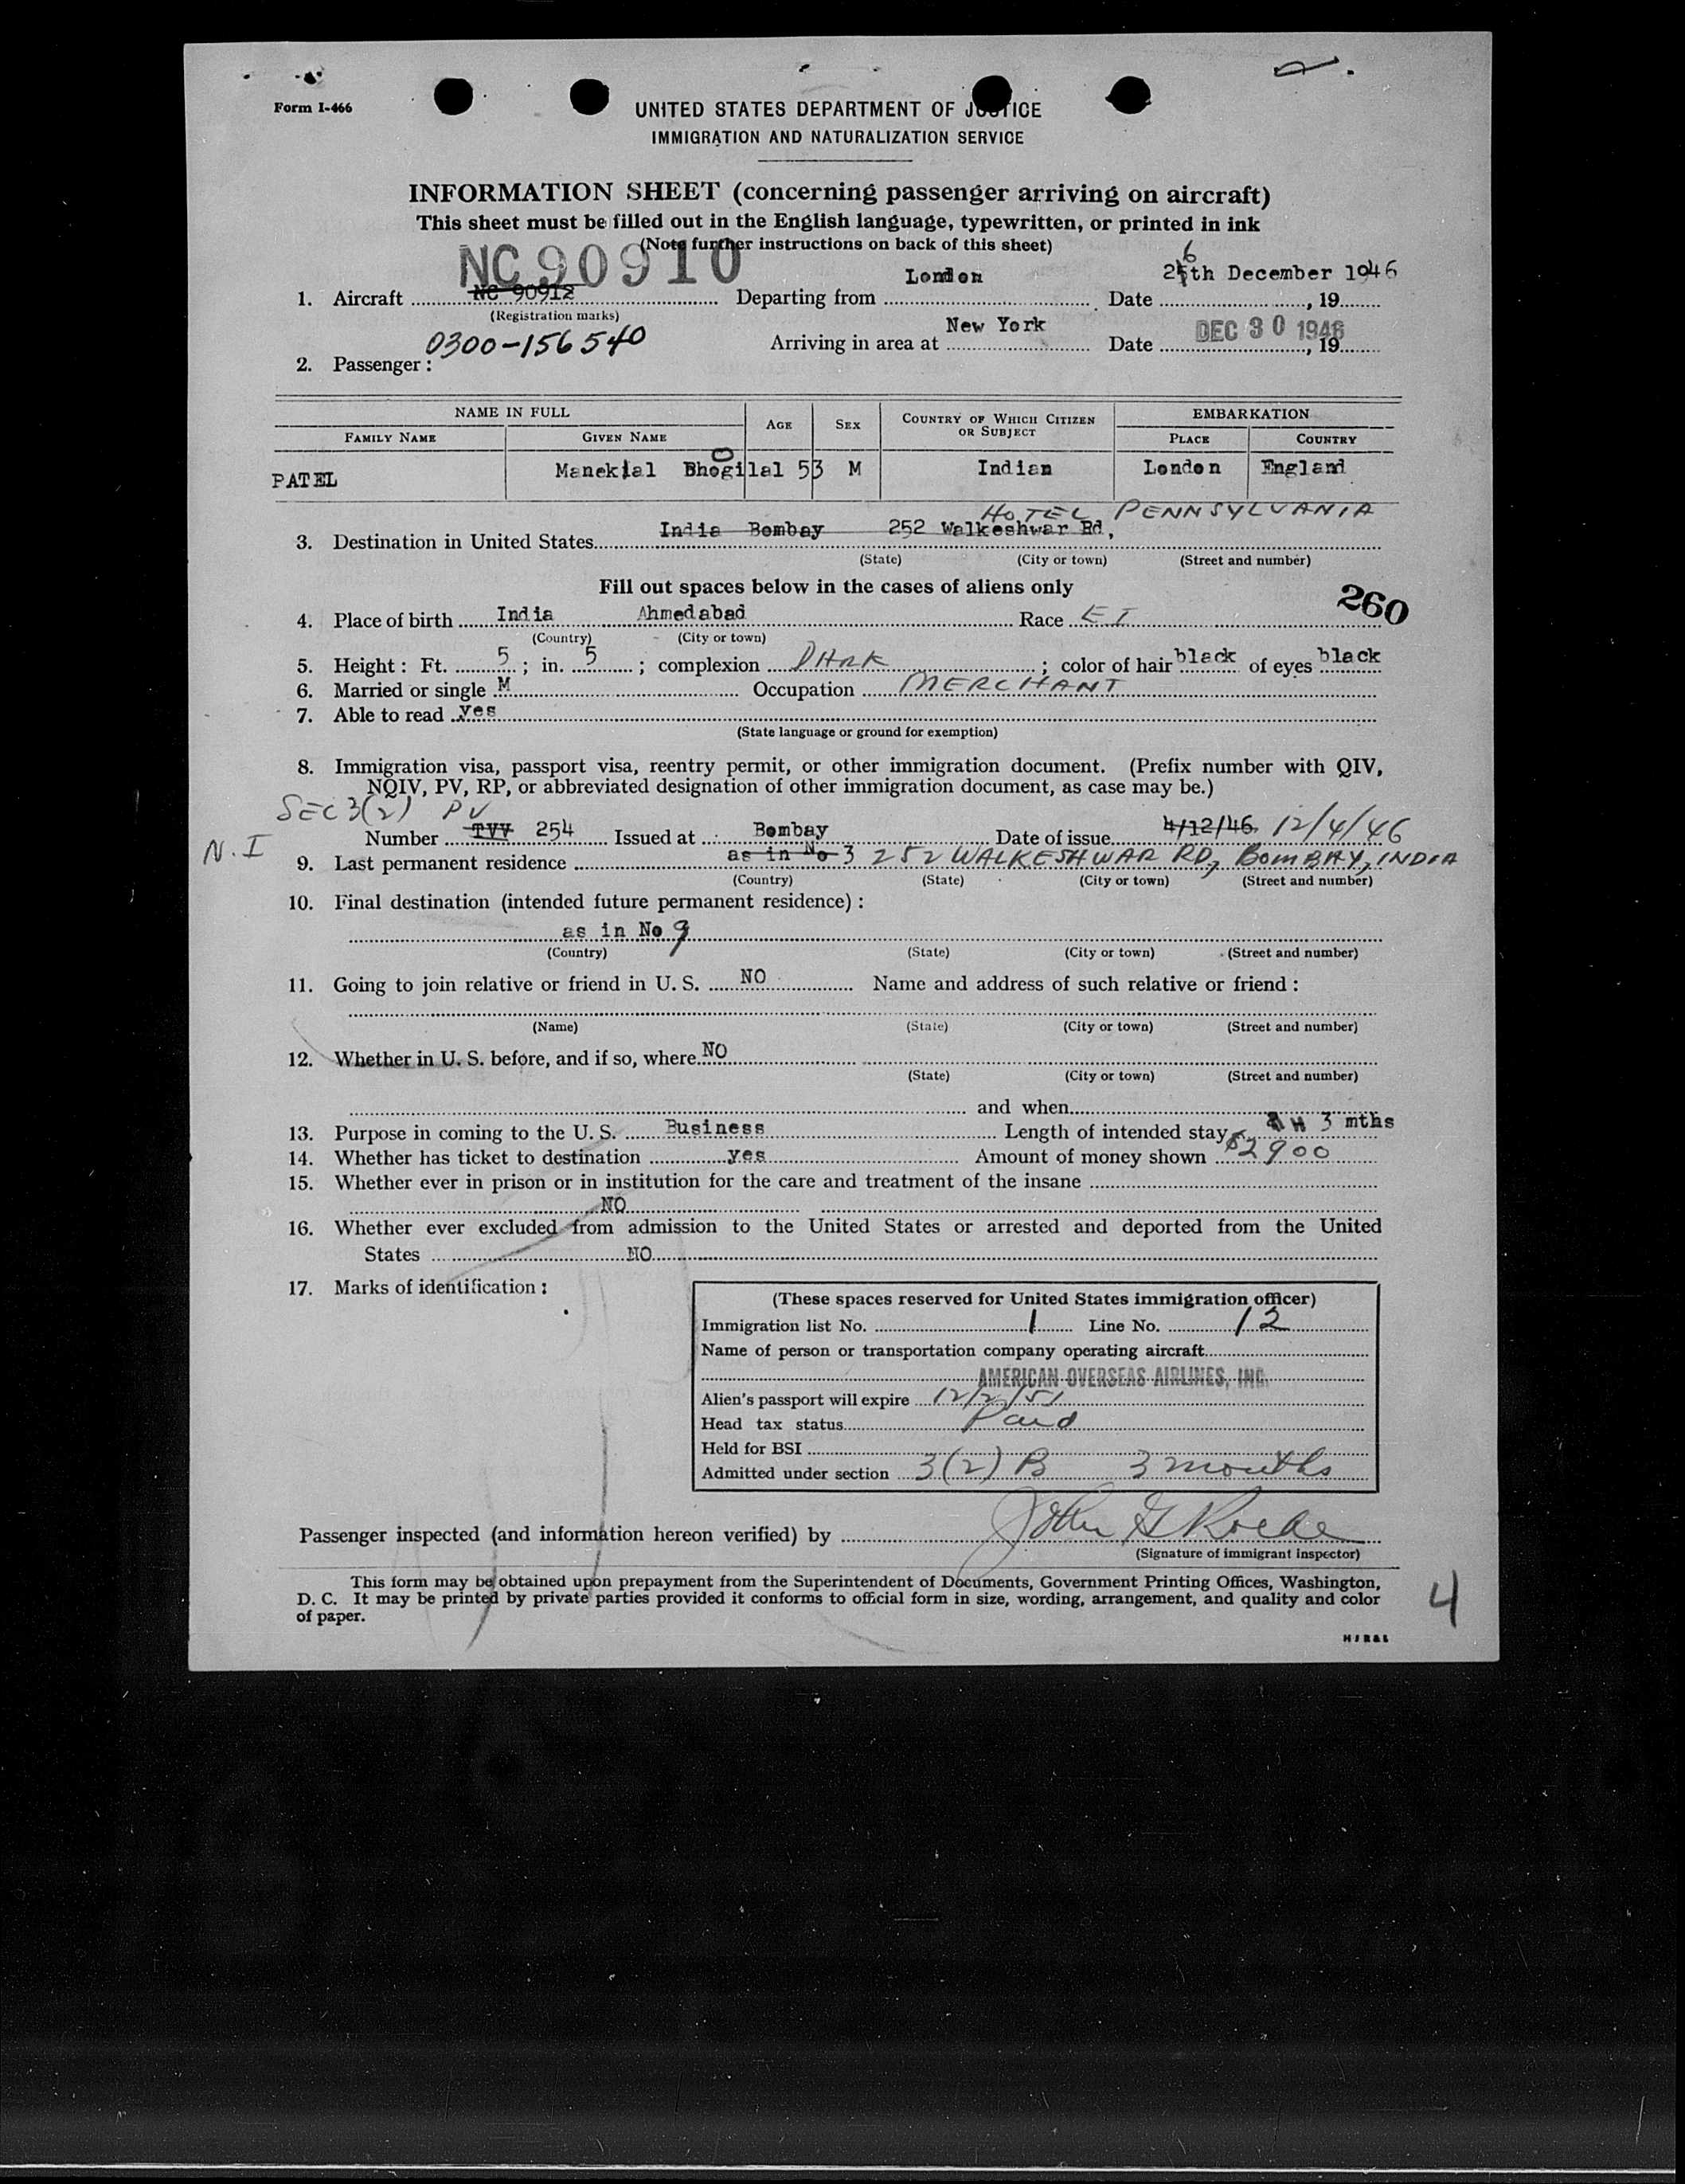 Form I-466
UNITED STATES DEPARTMENT OF JUSTICE
IMMIGRATION AND NATURALIZATION SERVICE
INFORMATION SHEET (concerning passenger arriving on aircraft)
This sheet must be filled out in the English language, typewritten, or printed in ink
(Note further instructions on back of this sheet)
NC 90910
1. Aircraft NC 90912 Departing from London Date 26th December 1946, 19
(Registration marks)
0300-156540
Arriving in area at New York Date DEC 30 1946, 19
2. Passenger:
NAME IN FULL AGE SEX COUNTRY OF WHICH CITIZEN OR SUBJECT EMBARKATION
FAMILY NAME GIVEN NAME PLACE COUNTRY
PATEL Maneklal Bhogilal 53 M Indian London England
HOTEL PENNSYLVANIA
3. Destination in United States India Bombay 252 Walkeshwar Rd,
(State) (City or town) (Street and number)
Fill out spaces below in the cases of aliens only
260
4. Place of birth India Ahmedabad Race E I
(Country) (City or town)
5. Height: Ft. 5; in. 5; complexion DARK; color of hair black of eyes black
6. Married or single M Occupation MERCHANT
7. Able to read yes
(State language or ground for exemption)
8. Immigration visa, passport visa, reentry permit, or other immigration document. (Prefix number with QIV,
NQIV, PV, RP, or abbreviated designation of other immigration document, as case may be.)
SEC 3(2) PV
Number TVV 254 Issued at Bombay Date of issue 4/12/46. 12/4/46
N.I
9. Last permanent residence as in No 3 252 WALKESHWAR RD, BOMBAY, INDIA
(Country) (State) (City or town) (Street and number)
10. Final destination (intended future permanent residence):
as in No 9
(Country) (State) (City or town) (Street and number)
11. Going to join relative or friend in U. S. NO Name and address of such relative or friend:
(Name) (State) (City or town) (Street and number)
12. Whether in U. S. before, and if so, where NO
(State) (City or town) (Street and number)
and when
13. Purpose in coming to the U. S. Business Length of intended stay 3 mths
14. Whether has ticket to destination yes Amount of money shown $2900
15. Whether ever in prison or in institution for the care and treatment of the insane
NO
16. Whether ever excluded from admission to the United States or arrested and deported from the United
States NO
17. Marks of identification:
(These spaces reserved for United States immigration officer)
Immigration list No. 1 Line No. 12
Name of person or transportation company operating aircraft
AMERICAN OVERSEAS AIRLINES, INC.
Alien's passport will expire 12/2/51
Head tax status Paid
Held for BSI
Admitted under section 3(2) B 3 months
Passenger inspected (and information hereon verified) by John G Roche
(Signature of immigrant inspector)
This form may be obtained upon prepayment from the Superintendent of Documents, Government Printing Offices, Washington,
D. C. It may be printed by private parties provided it conforms to official form in size, wording, arrangement, and quality and color
of paper.
4